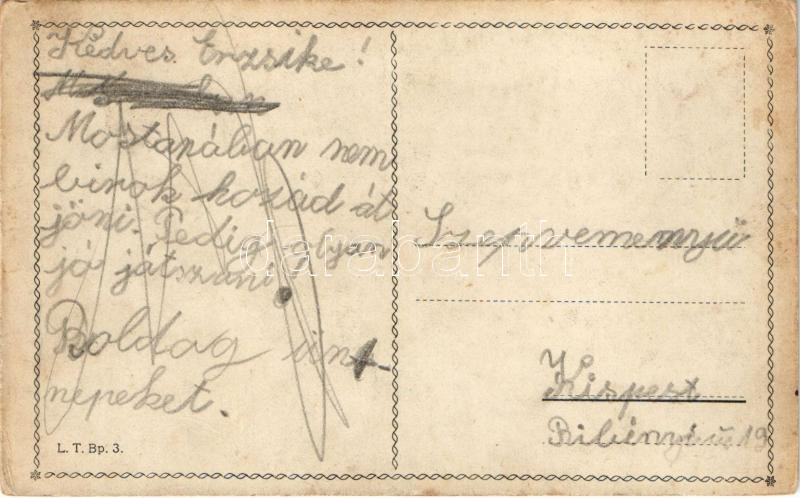 Kedves Erzsike!
Mostanában nem
birok hozád át
jöni. Pedig olyan
jó játszani.
Boldog ün-
nepeket.
L. T. Bp. 3.
Kispest
19
darabanth